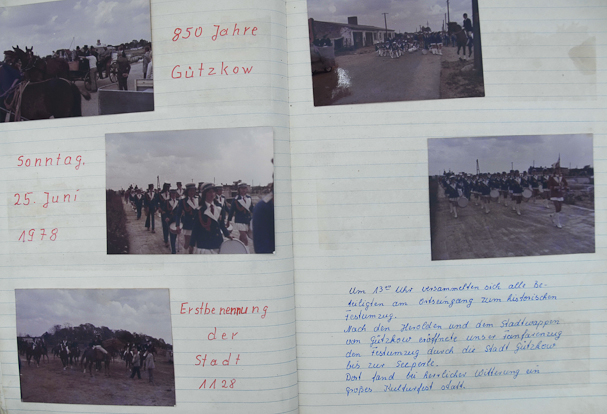 850 Jahre
Gützkow
Sonntag,
25. Juni
1978
Erstbenennung
der
Stadt
1128
Um 13⁰⁰ Uhr versammelten sich alle be-
teiligten am Ortseingang zum historischen
Festumzug.
Nach den Herolden und dem Stadtwappen
von Gützkow eröffnete unser Fanfarenzug
den Festumzug durch die Stadt Gützkow
bis zur Seeperle.
Dort fand bei herrlicher Witterung ein
großes Kulturfest statt.